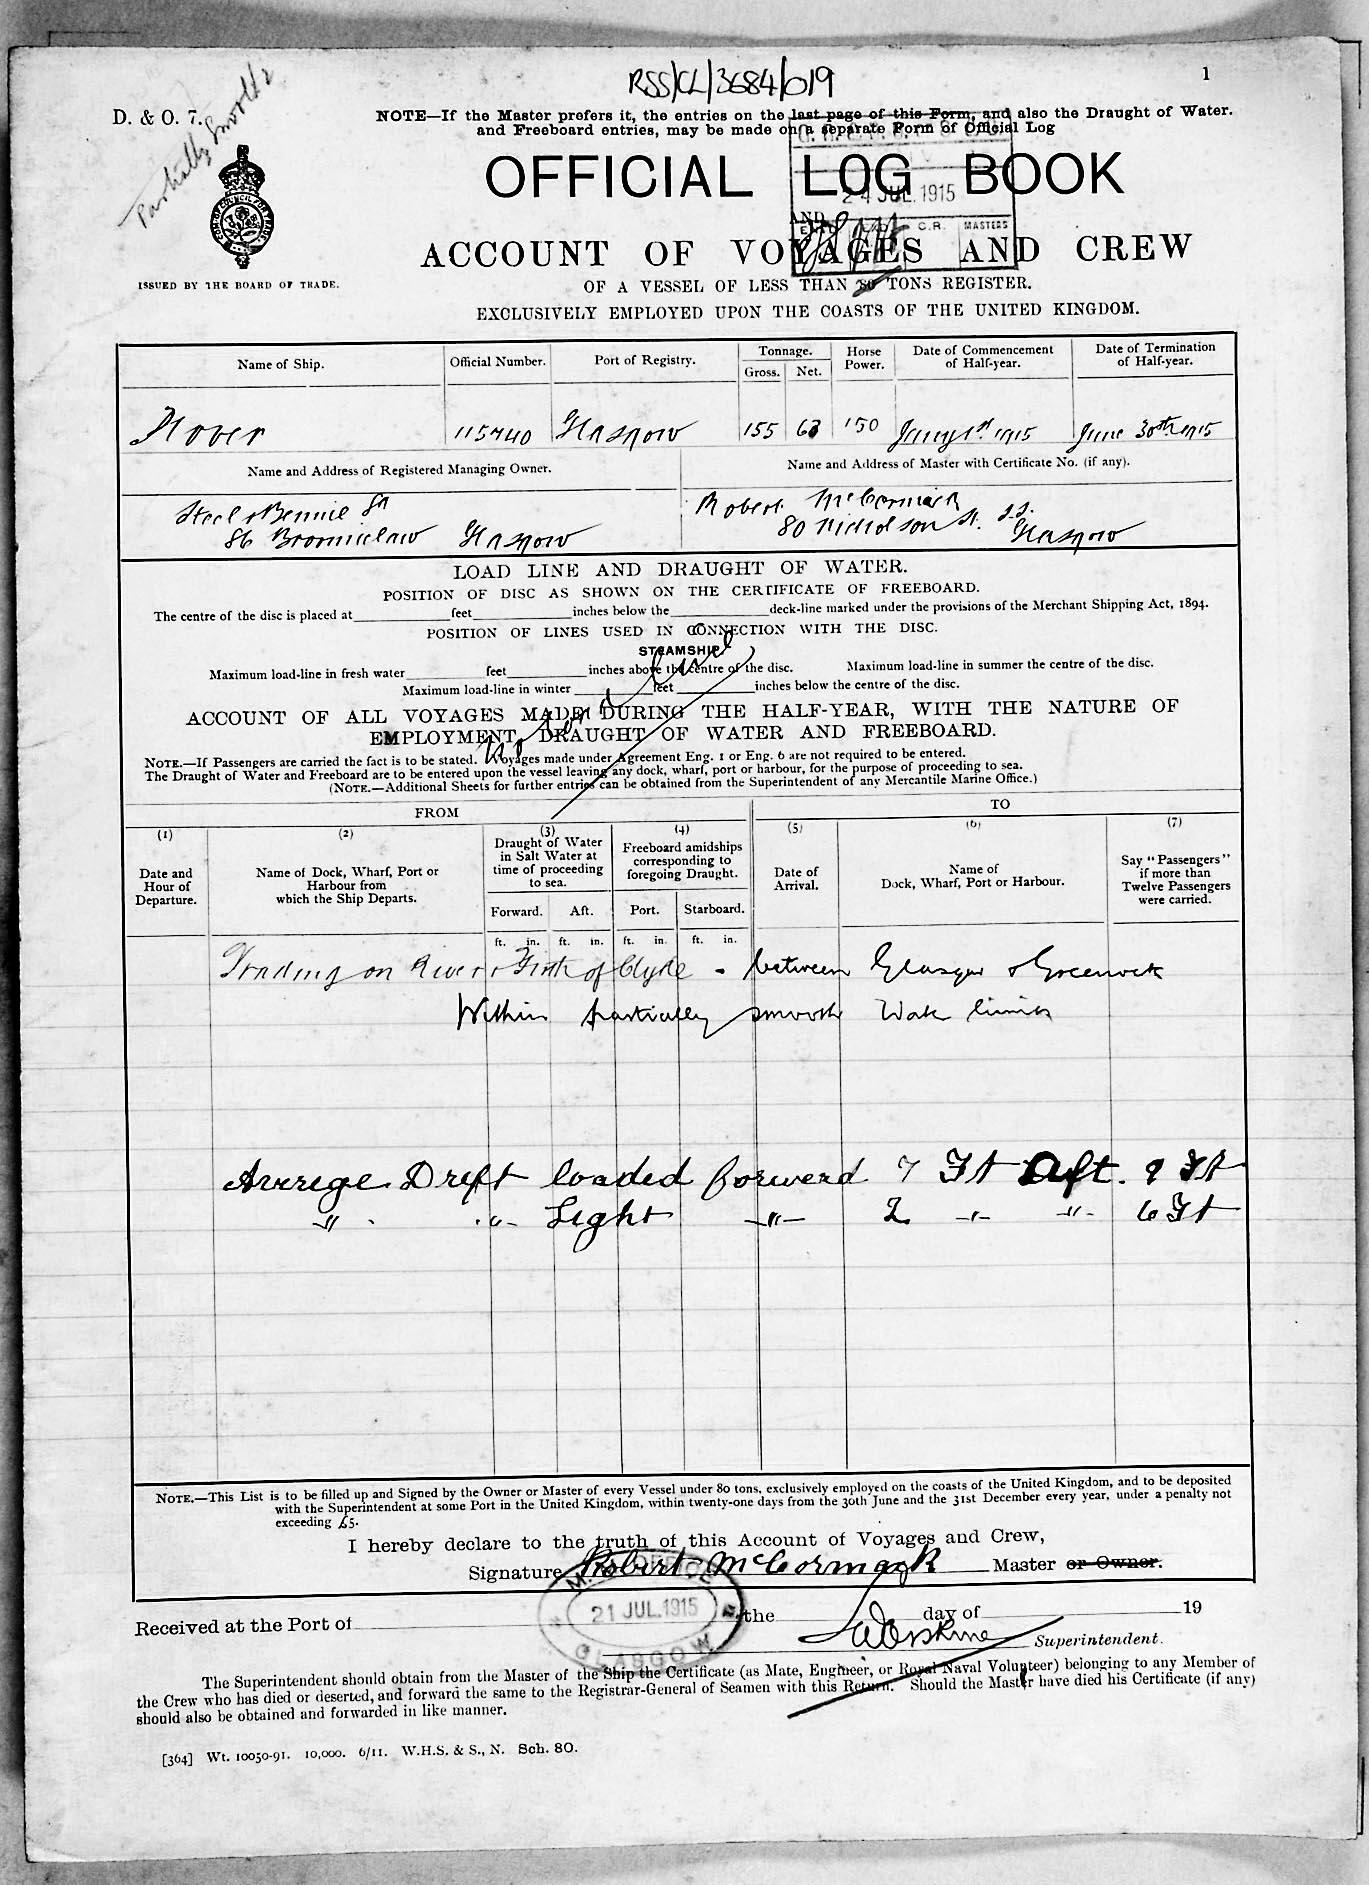 RSS/CL/3684/019
1
D. & O. 7.
Partially Smooth
NOTE—If the Master prefers it, the entries on the last page of this Form, and also the Draught of Water.
and Freeboard entries, may be made on a separate Form of Official Log
OFFICIAL LOG BOOK
24 JUL. 1915
AND
C.R. MASTERS
ACCOUNT OF VOYAGES AND CREW
ISSUED BY THE BOARD OF TRADE.
OF A VESSEL OF LESS THAN 80 TONS REGISTER.
EXCLUSIVELY EMPLOYED UPON THE COASTS OF THE UNITED KINGDOM.
Name of Ship. Official Number. Port of Registry. Tonnage. Gross. Net. Horse Power. Date of Commencement of Half-year. Date of Termination of Half-year.
Rover 115740 Glasgow 155 63 150 Jany 1st 1915 June 30th 1915
Name and Address of Registered Managing Owner. Name and Address of Master with Certificate No. (if any).
Steel & Bennie Ld Robert McCormack
86 Broomielaw Glasgow 80 Nicholson St. S.S. Glasgow
LOAD LINE AND DRAUGHT OF WATER.
POSITION OF DISC AS SHOWN ON THE CERTIFICATE OF FREEBOARD.
The centre of the disc is placed at feet inches below the deck-line marked under the provisions of the Merchant Shipping Act, 1894.
POSITION OF LINES USED IN CONNECTION WITH THE DISC.
STEAMSHIP
Maximum load-line in fresh water feet inches above the centre of the disc. Maximum load-line in summer the centre of the disc.
Maximum load-line in winter feet inches below the centre of the disc.
No Load Line
ACCOUNT OF ALL VOYAGES MADE DURING THE HALF-YEAR, WITH THE NATURE OF
EMPLOYMENT, DRAUGHT OF WATER AND FREEBOARD.
NOTE.—If Passengers are carried the fact is to be stated. Voyages made under Agreement Eng. 1 or Eng. 6 are not required to be entered.
The Draught of Water and Freeboard are to be entered upon the vessel leaving any dock, wharf, port or harbour, for the purpose of proceeding to sea.
(NOTE.—Additional Sheets for further entries can be obtained from the Superintendent of any Mercantile Marine Office.)
FROM TO
(1) (2) (3) (4) (5) (6) (7)
Date and Hour of Departure. Name of Dock, Wharf, Port or Harbour from which the Ship Departs. Draught of Water in Salt Water at time of proceeding to sea. Freeboard amidships corresponding to foregoing Draught. Date of Arrival. Name of Dock, Wharf, Port or Harbour. Say "Passengers" if more than Twelve Passengers were carried.
Forward. Aft. Port. Starboard.
ft. in. ft. in. ft. in. ft. in.
Trading on River & Firth of Clyde - between Glasgow & Greenock
Within partially smooth Water limits
Averege Dreft loaded forwerd 7 Ft Aft. 9 Ft
" " Light " 2 " " 6 Ft
NOTE.—This List is to be filled up and Signed by the Owner or Master of every Vessel under 80 tons, exclusively employed on the coasts of the United Kingdom, and to be deposited
with the Superintendent at some Port in the United Kingdom, within twenty-one days from the 30th June and the 31st December every year, under a penalty not
exceeding £5.
I hereby declare to the truth of this Account of Voyages and Crew,
Signature Robert McCormack Master or Owner.
M.M. OFFICE
21 JUL. 1915
GLASGOW
Received at the Port of the day of 19
Superintendent.
The Superintendent should obtain from the Master of the Ship the Certificate (as Mate, Engineer, or Royal Naval Volunteer) belonging to any Member of
the Crew who has died or deserted, and forward the same to the Registrar-General of Seamen with this Return. Should the Master have died his Certificate (if any)
should also be obtained and forwarded in like manner.
[364] Wt. 10050-91. 10,000. 6/11. W.H.S. & S., N. Sch. 80.